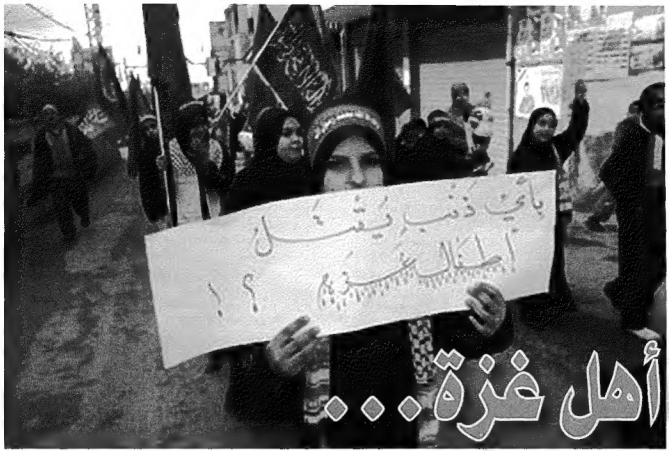 بأيِّ ذَنْبٍ يُقْتَلُ
أطفال غزة ؟!
أهل غزة...